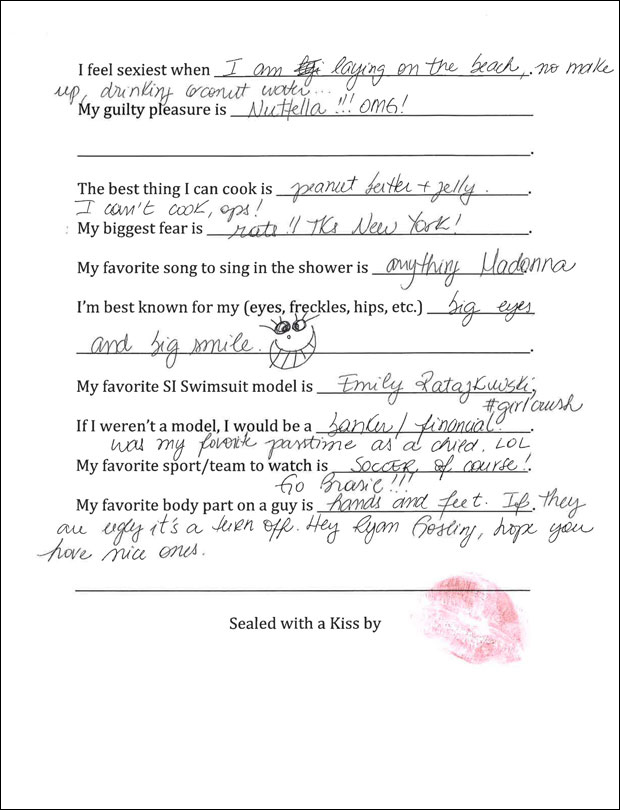 I feel sexiest when I am laying on the beach, no make
up, drinking coconut water...
My guilty pleasure is Nuttella!!! OMG!
The best thing I can cook is peanut butter + jelly.
I can't cook, ops!
My biggest fear is rats!! TKs New York!
My favorite song to sing in the shower is anything Madonna
I'm best known for my (eyes, freckles, hips, etc.) big eyes
and big smile.
My favorite SI Swimsuit model is Emily Ratajkowski,
#girlcrush
If I weren't a model, I would be a banker/financial.
was my favorite passtime as a child. LOL
My favorite sport/team to watch is SOCCER, of course!
Go Brasil!!!
My favorite body part on a guy is hands and feet. If they
are ugly it's a turn off. Hey Ryan Gosling, hope you
have nice ones.
Sealed with a Kiss by